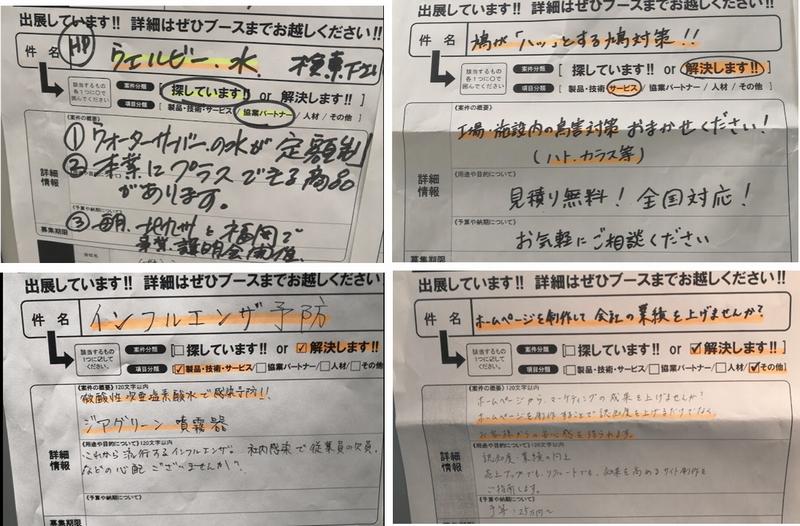 出展しています!! 詳細はぜひブースまでお越しください!!
件 名
HP
ウェルビー 水
検索下さい
該当するもの
各1つに○で
囲んでください
案件分類
[ 探しています!! or 解決します!! ]
項目分類
[ 製品・技術・サービス / 協業パートナー / 人材 / その他 ]
(案件の概要)
詳細
情報
① ウォーターサーバーの水が定額制
② 本業にプラスできる商品
があります。
(予算や納期について)
③ 毎月、北九州と福岡で
事業説明会開催。
募集期限
出展しています!! 詳細はぜひブースまでお越しください!!
件 名
鳩が「ハッ」とする鳩対策!!
該当するもの
各1つに○で
囲んでください
案件分類
[ 探しています!! or 解決します!! ]
項目分類
[ 製品・技術・サービス / 協業パートナー / 人材 / その他 ]
(案件の概要)
工場・施設内の鳥害対策 おまかせください!
(ハト、カラス等)
詳細
情報
(用途や目的について)
見積り無料! 全国対応!
(予算や納期について)
お気軽にご相談ください
募集期限
出展しています!! 詳細はぜひブースまでお越しください!!
件 名
インフルエンザ予防
該当するもの
1つに☑して
ください。
案件分類
□探しています!! or ☑解決します!!
項目分類
☑製品・技術・サービス/□協業パートナー/□人材/□その他]
(案件の概要) 120文字以内
微酸性次亜塩素酸水で感染予防!!
ジアグリーン 噴霧器
詳細
情報
(用途や目的について) 120文字以内
これから流行するインフルエンザ。社内感染で従業員の欠員、
などの心配ございませんか?
(予算や納期について)
募集期限
出展しています!! 詳細はぜひブースまでお越しください!!
件 名
ホームページを制作して会社の業績を上げませんか?
該当するもの
1つに☑して
ください。
案件分類
□探しています!! or ☑解決します!!
項目分類
[□製品・技術・サービス/□協業パートナー/□人材/☑その他]
(案件の概要) 120文字以内
ホームページから、マーケティングの成果を上げませんか?
ホームページを制作することで認知度を上げるだけでなく、
お客様からの安心感を得られます。
詳細
情報
(用途や目的について) 120文字以内
認知度・業績の向上
売上アップでも、リクルートでも、効果を高めるサイト制作を
ご指南します。
(予算や納期について)
予算:25万円〜
募集期限